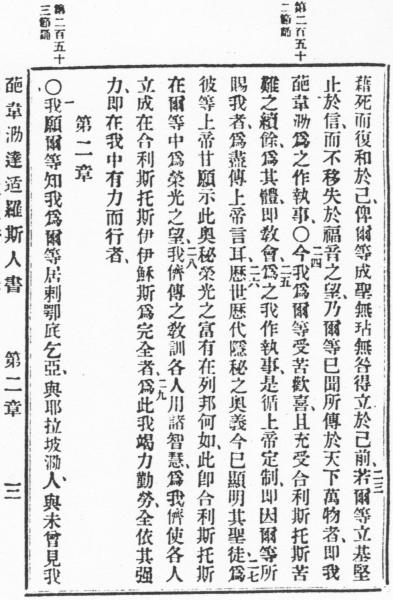 第二百五十二節誦
第二百五十三節誦
藉死而復和於己、俾爾等成聖無玷無咎得立於己前、二三若爾等立基堅
止於信、而不移失於福音之望、乃爾等已聞所傳於天下萬物者、即我
葩韋泐爲之作執事、○二四今我爲爾等受苦歡喜、且充受合利斯托斯苦
難之續餘、爲其體即敎會爲之我作執事、二五是循上帝定制、即因爾等所
賜我者、爲盡傳上帝言耳、二六歷世歷代隱秘之奧義、今已顯明其聖徒、二七爲
彼等上帝甘願示此奧秘榮光之富有在列邦何如、此即合利斯托斯
在爾等中爲榮光之望、二八我儕傳之敎訓各人用諸智慧、爲我儕使各人
立成在合利斯托斯伊伊穌斯爲完全者、二九爲此我竭力勤勞全依其强
力即在我中有力而行者、
第二章
○一我願爾等知我爲爾等居剌鄂底乞亞、與耶拉坡泐人、與未曾見我
葩韋泐達适羅斯人書 第二章 三